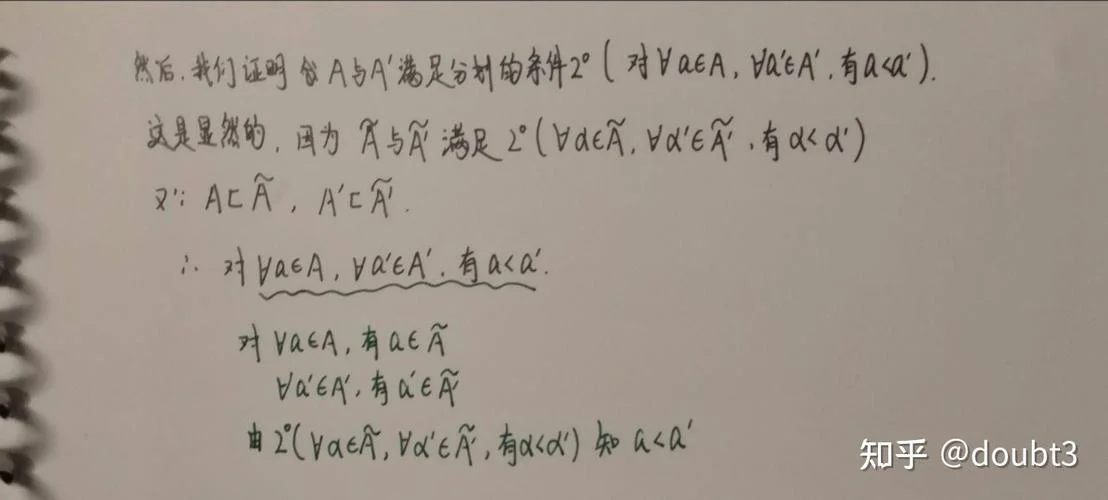 然后,我们证明 A与A'满足分划的条件2°( 对∀a∈A, ∀a'∈A', 有a<a').
这是显然的, 因为 Ã与Ã' 满足 2°(∀α∈Ã, ∀α'∈Ã', 有α<α')
又∵ A⊂Ã, A'⊂Ã'.
∴ 对∀a∈A, ∀a'∈A', 有a<a'.
对∀a∈A, 有a∈Ã
∀a'∈A', 有a'∈Ã'
由2°(∀α∈Ã, ∀α'∈Ã', 有α<α') 知 a<a'
知乎 @doubt3